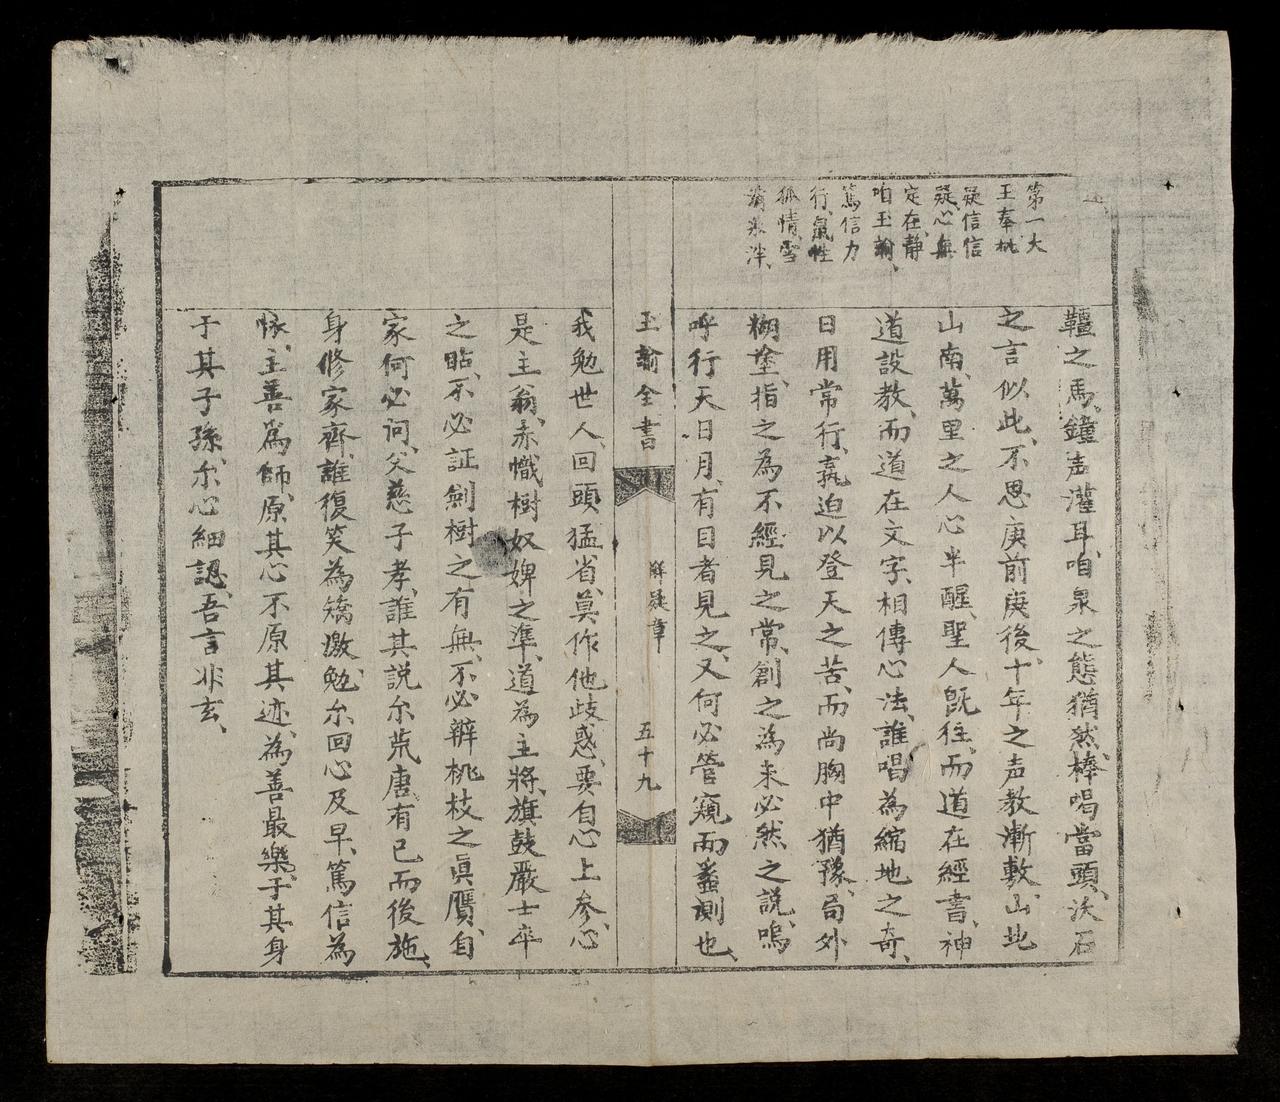 第一大
王奉桃
疑信信
疑心無
定在静
咱玉翰、
篤信力
行鼠性
狐情雪
消氷泮、
韁之馬、鐘声灌耳、咱泉之態猶然、棒喝當頭、沃石
之言似此、不思庚前庚後、十年之声教漸敷、山北
山南、萬里之人心半醒、聖人既往、而道在經書、神
道設教、而道在文字、相傳心法、誰唱為縮地之奇、
日用常行、孰迫以登天之苦、而尚胸中猶豫、局外
糊塗、指之為不經見之常、創之為未必然之説、嗚
呼行天日月、有目者見之、又何必管窺而蠡測也、
玉翰全書
解疑章
五十九
我勉世人、回頭猛省、莫作他歧惑、要自心上參、心
是主翁、赤幟樹奴婢之準、道為主將、旗鼓嚴士卒
之瞻、不必証劍樹之有無、不必辨桃枝之眞贋、自
家何必问、父慈子孝、誰其説尔荒唐、有己而後施、
身修家齊、誰復笑為矯激、勉尔回心及早、篤信為
懷、主善爲師、原其心不原其迹、為善最樂、于其身
于其子孫、尔心細認、吾言非玄、